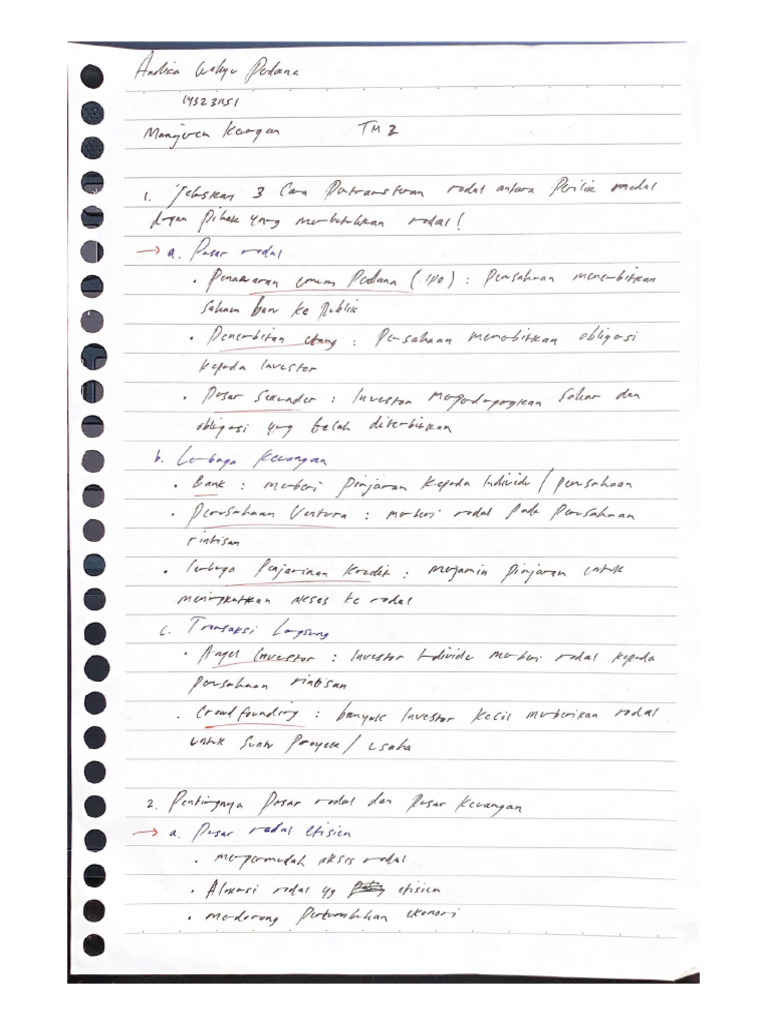 Andika Wahyu Perdana
Manajemen Keuangan TM 2
1. Jelaskan 3 Cara Pentransferan modal antara Pemilik modal
dengan Pihak yang membutuhkan modal!
→ a. Pasar modal
• Penawaran umum Perdana (IPO) : Perusahaan menerbitkan
saham baru ke Publik
• Penerbitan utang : Perusahaan menerbitkan obligasi
kepada Investor
• Pasar Sekunder : Investor memperdagangkan saham dan
obligasi yang telah diterbitkan
b. Lembaga Keuangan
• Bank : memberi Pinjaman kepada Individu / perusahaan
• Perusahaan Ventura : memberi modal pada Perusahaan
rintisan
• lembaga Penjaminan Kredit : menjamin Pinjaman untuk
meningkatkan akses ke modal
c. Transaksi Langsung
• Angel Investor : Investor Individu memberi modal kepada
perusahaan rintisan
• Crowd founding : banyak Investor kecil memberikan modal
untuk suatu Proyek / usaha
2. Pentingnya Pasar modal dan Pasar Keuangan
→ a. Pasar modal efisien
• mempermudah akses modal
• Alokasi modal yg efisien
• mendorong Pertumbuhan ekonomi